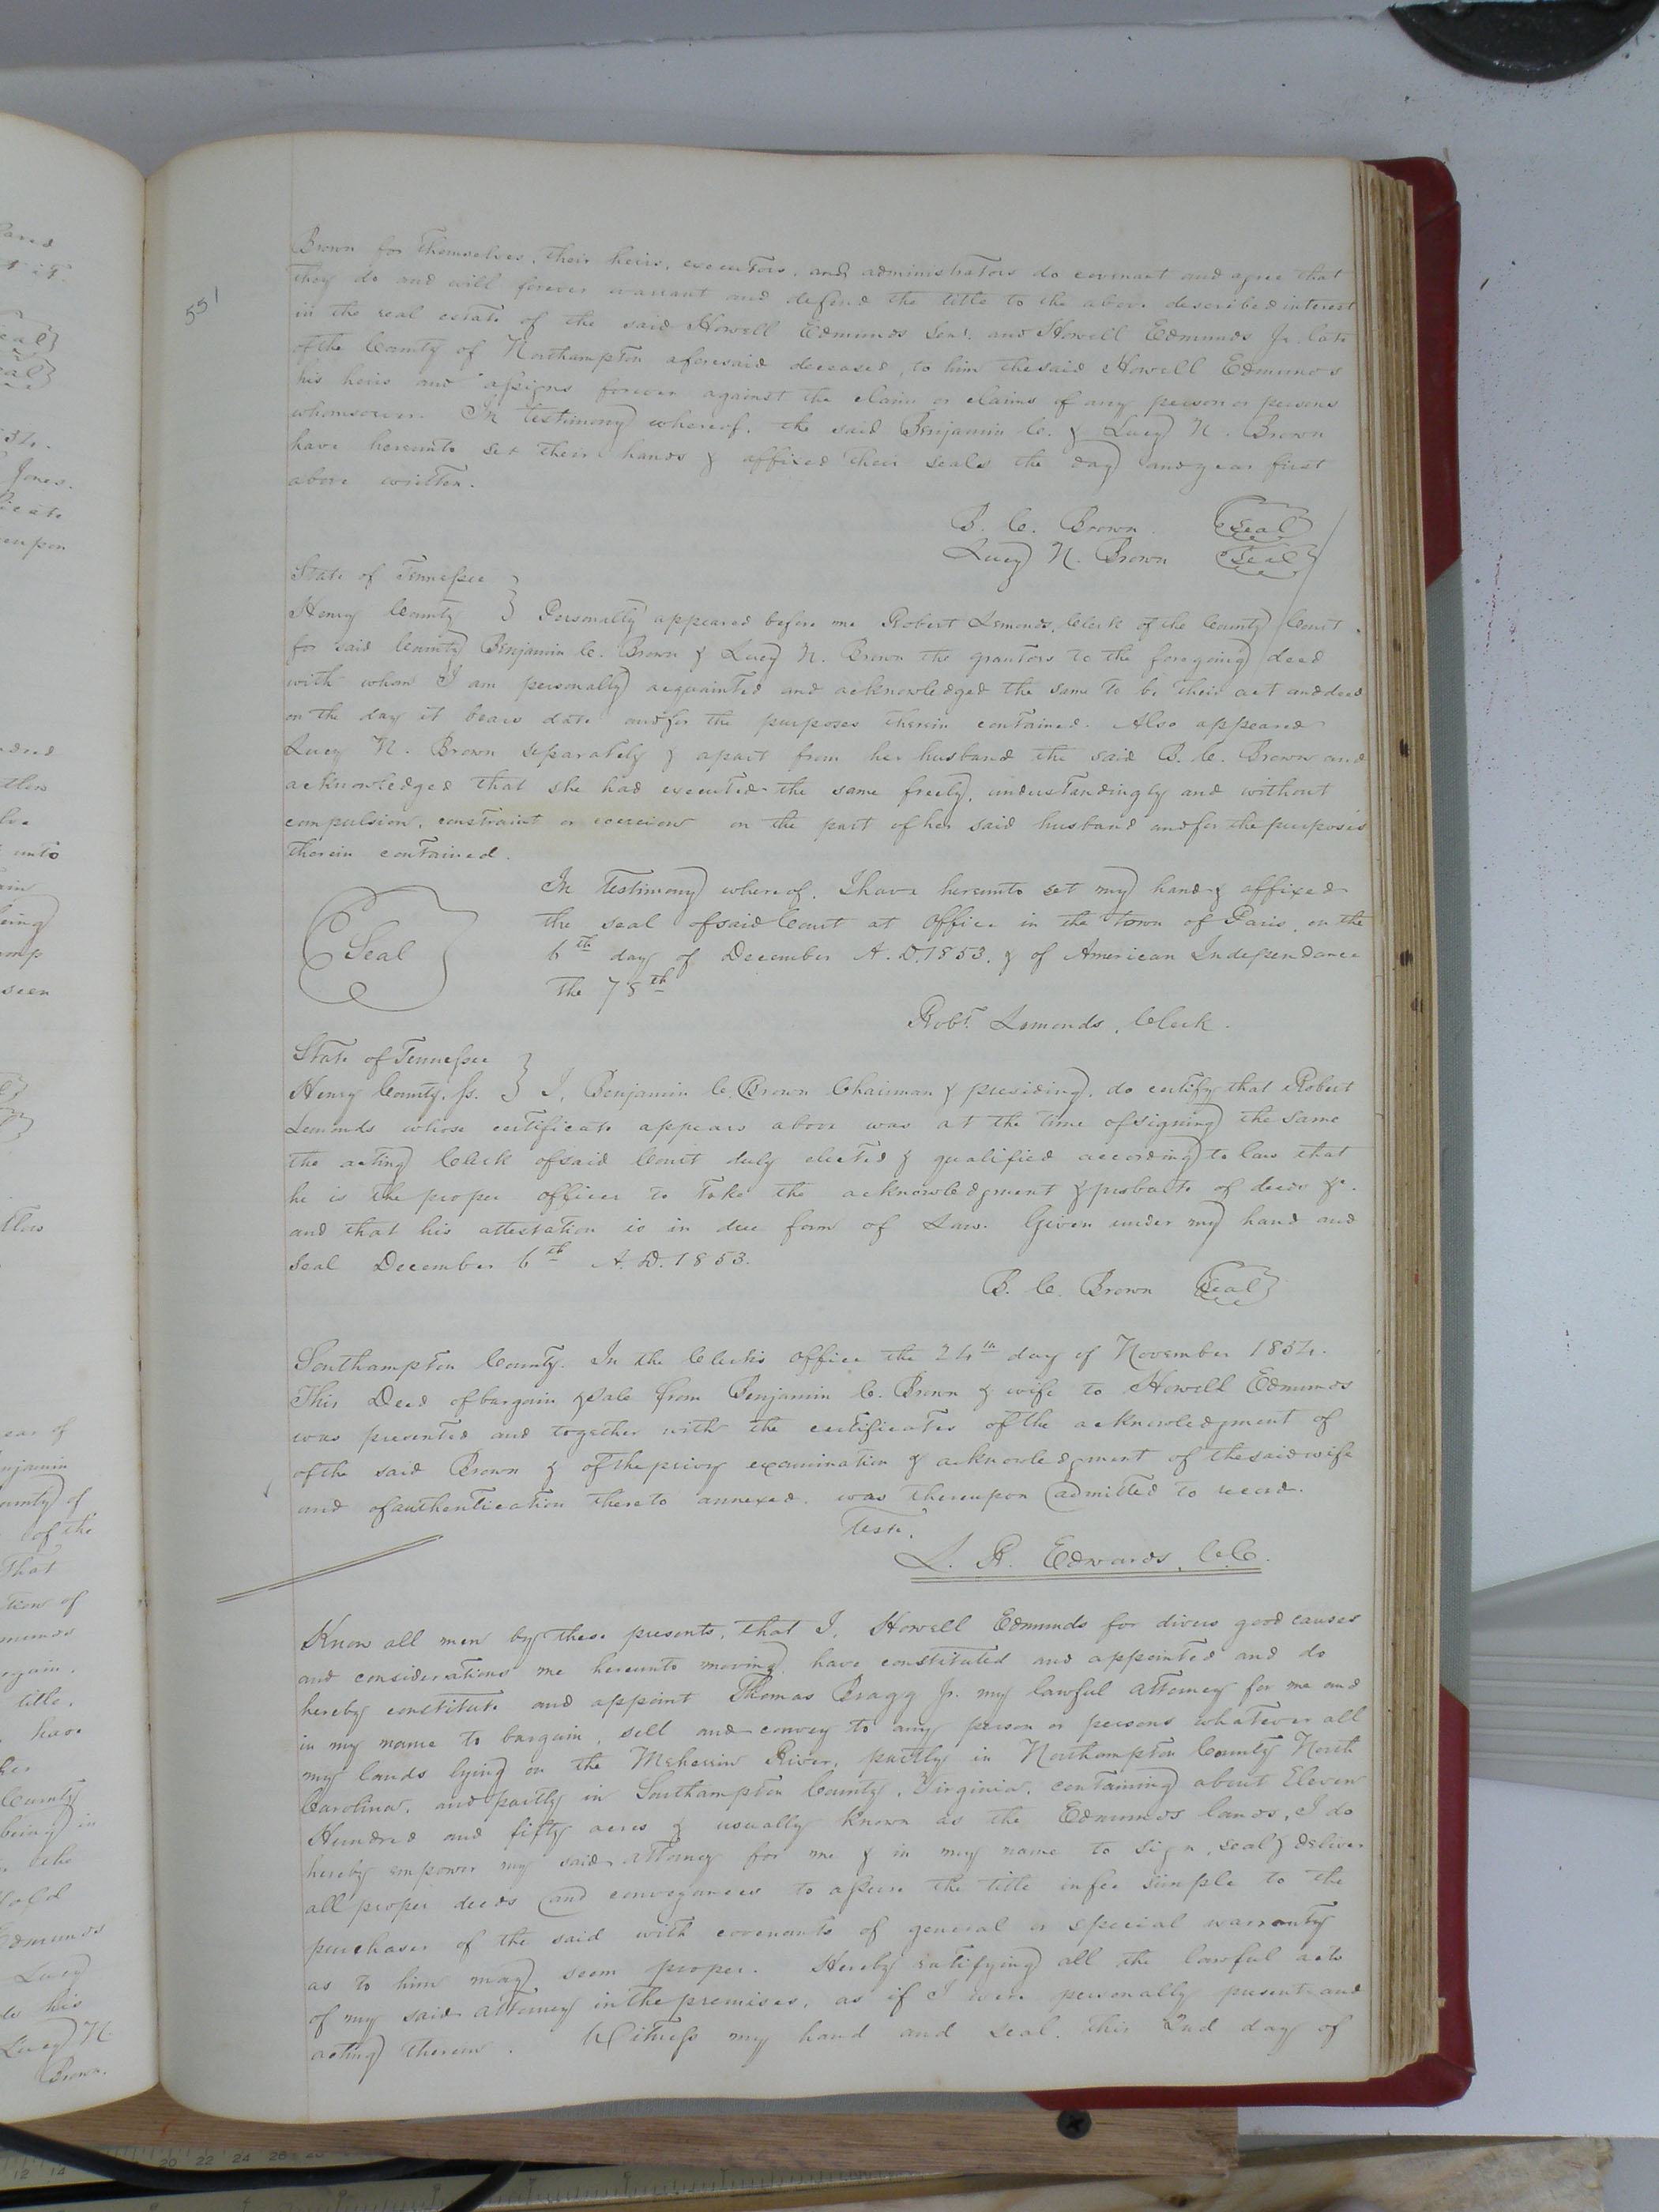 551
Brown for themselves, their heirs, executors, and administrators do covenant and agree that
they do and will forever warrant and defend the title to the above described interest
in the real estate of the said Howell Edmunds Senr. and Howell Edmunds Jr. late
of the County of Northampton aforesaid deceased, to him the said Howell Edmunds
his heirs and assigns forever against the claim or claims of any person or persons
whomsoever. In testimony whereof, the said Benjamin C. & Lucy N. Brown
have hereunto set their hands & affixed their seals the day and year first
above written.
B. C. Brown Seal
Lucy N. Brown Seal
State of Tennessee
Henry County } Personally appeared before me Robert Lemonds, Clerk of the County Court
for said County Benjamin C. Brown & Lucy N. Brown the grantors to the foregoing deed
with whom I am personally acquainted and acknowledged the same to be their act and deed
on the day it bears date and for the purposes therein contained. Also appeared
Lucy N. Brown separately & apart from her husband the said B. C. Brown and
acknowledged that she had executed the same freely, understandingly and without
compulsion, constraint or coercion on the part of her said husband and for the purposes
therein contained.
In testimony whereof, I have hereunto set my hand & affixed
the seal of said Court at office in the town of Paris, on the
6th day of December A.D. 1853, & of American Independence
the 78th
Seal
Robt. Lemonds, Clerk.
State of Tennessee
Henry County, ss. } I, Benjamin C. Brown Chairman & presiding, do certify that Robert
Lemonds whose certificate appears above was at the time of signing the same
the acting Clerk of said Court duly elected & qualified according to law that
he is the proper officer to take the acknowledgment & probate of deeds &c.
and that his attestation is in due form of Law. Given under my hand and
seal December 6th A.D. 1853.
B. C. Brown Seal
Southampton County. In the Clerk's office the 24th day of November 1854.
This Deed of bargain & sale from Benjamin C. Brown & wife to Howell Edmunds
was presented and together with the certificates of the acknowledgment of
of the said Brown & of the privy examination & acknowledgment of the said wife
and of authentication thereto annexed, was thereupon admitted to record.
Teste.
L. R. Edwards, C.C.
Know all men by these presents, that I, Howell Edmunds for divers good causes
and considerations me hereunto moving, have constituted and appointed and do
hereby constitute and appoint Thomas Bragg Jr. my lawful attorney for me and
in my name to bargain, sell and convey to any person or persons whatever all
my lands lying on the Meherrin River, partly in Northampton County North
Carolina, and partly in Southampton County, Virginia, containing about Eleven
Hundred and fifty acres & usually known as the Edmunds lands, I do
hereby empower my said attorney for me & in my name to sign, seal & deliver
all proper deeds and conveyances to assure the title in fee simple to the
purchaser of the said with covenants of general or special warranty
as to him may seem proper. Hereby ratifying all the lawful acts
of my said attorney in the premises, as if I were personally present and
acting therein. Witness my hand and seal. this 2nd day of